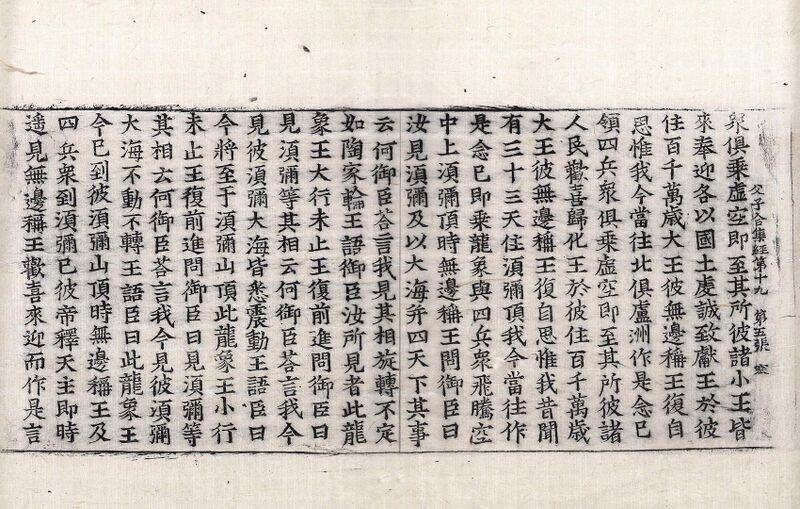 父子合集經第十九 第五張
衆俱乘虛空即至其所彼諸小王皆
來奉迎各以國土虔誠致獻王於彼
住百千萬歲大王彼無邊稱王復自
思惟我今當往北俱盧洲作是念已
領四兵衆俱乘虛空即至其所彼諸
人民歡喜歸化王於彼住百千萬歲
大王彼無邊稱王復自思惟我昔聞
有三十三天住湏彌頂我今當往作
是念已即乘龍象與四兵衆飛騰空
中上湏彌頂時無邊稱王問御臣曰
汝見湏彌及以大海并四天下其事
云何御臣荅言我見其相旋轉不定
如陶家輪王語御臣汝所見者此龍
象王大行未止王復前進問御臣曰
見湏彌等其相云何御臣荅言我今
見彼湏彌大海皆悉震動王語臣曰
今將至于湏彌山頂此龍象王小行
未止王復前進問御臣曰見湏彌等
其相云何御臣荅言我今見彼湏彌
大海不動不轉王語臣曰此龍象王
今已到彼湏彌山頂時無邊稱王及
四兵衆到湏彌已彼帝釋天主即時
遥見無邊稱王歡喜來迎而作是言